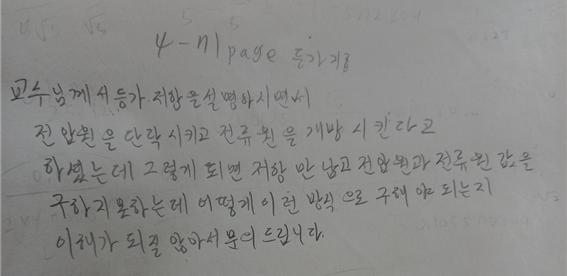 4-71 page 등가저항
교수님께서 등가 저항을 설명하시면서
전압원을 단락시키고 전류원을 개방 시킨다고
하셨는데 그렇게 되면 저항만 남고 전압원과 전류원 값을
구하지 못하는데 어떻게 이런 방식으로 구해야 되는지
이해가 되질 않아서 문의드립니다.